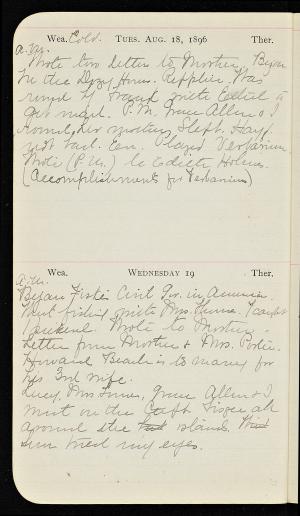 Wea. Cold. TUES. AUG. 18, 1896 Ther.
a.m.
Wrote two letters to Mother. Began
In the Dozy Hours. Repplier. Was
round with Edith to
get mail. P.M. Grace Allen & I
her mother. Slept. Hayf.
not bad. Eve. Played Verbarium
Wrote (P.M.) to Edith Holmes.
(Accomplishments for Verbarium)
Wea. WEDNESDAY 19 Ther.
a.m.
Began Fiske's Civil Gov. in America.
Went fishing with Mrs. I caught
1 Wrote to Mother.
Letter from Mother & Mrs. Porter.
Howard Beale is to marry for
his 3rd wife.
Lucy, Mrs. Grace Allen & I
went on the all
around the island.
sun tried my eyes.